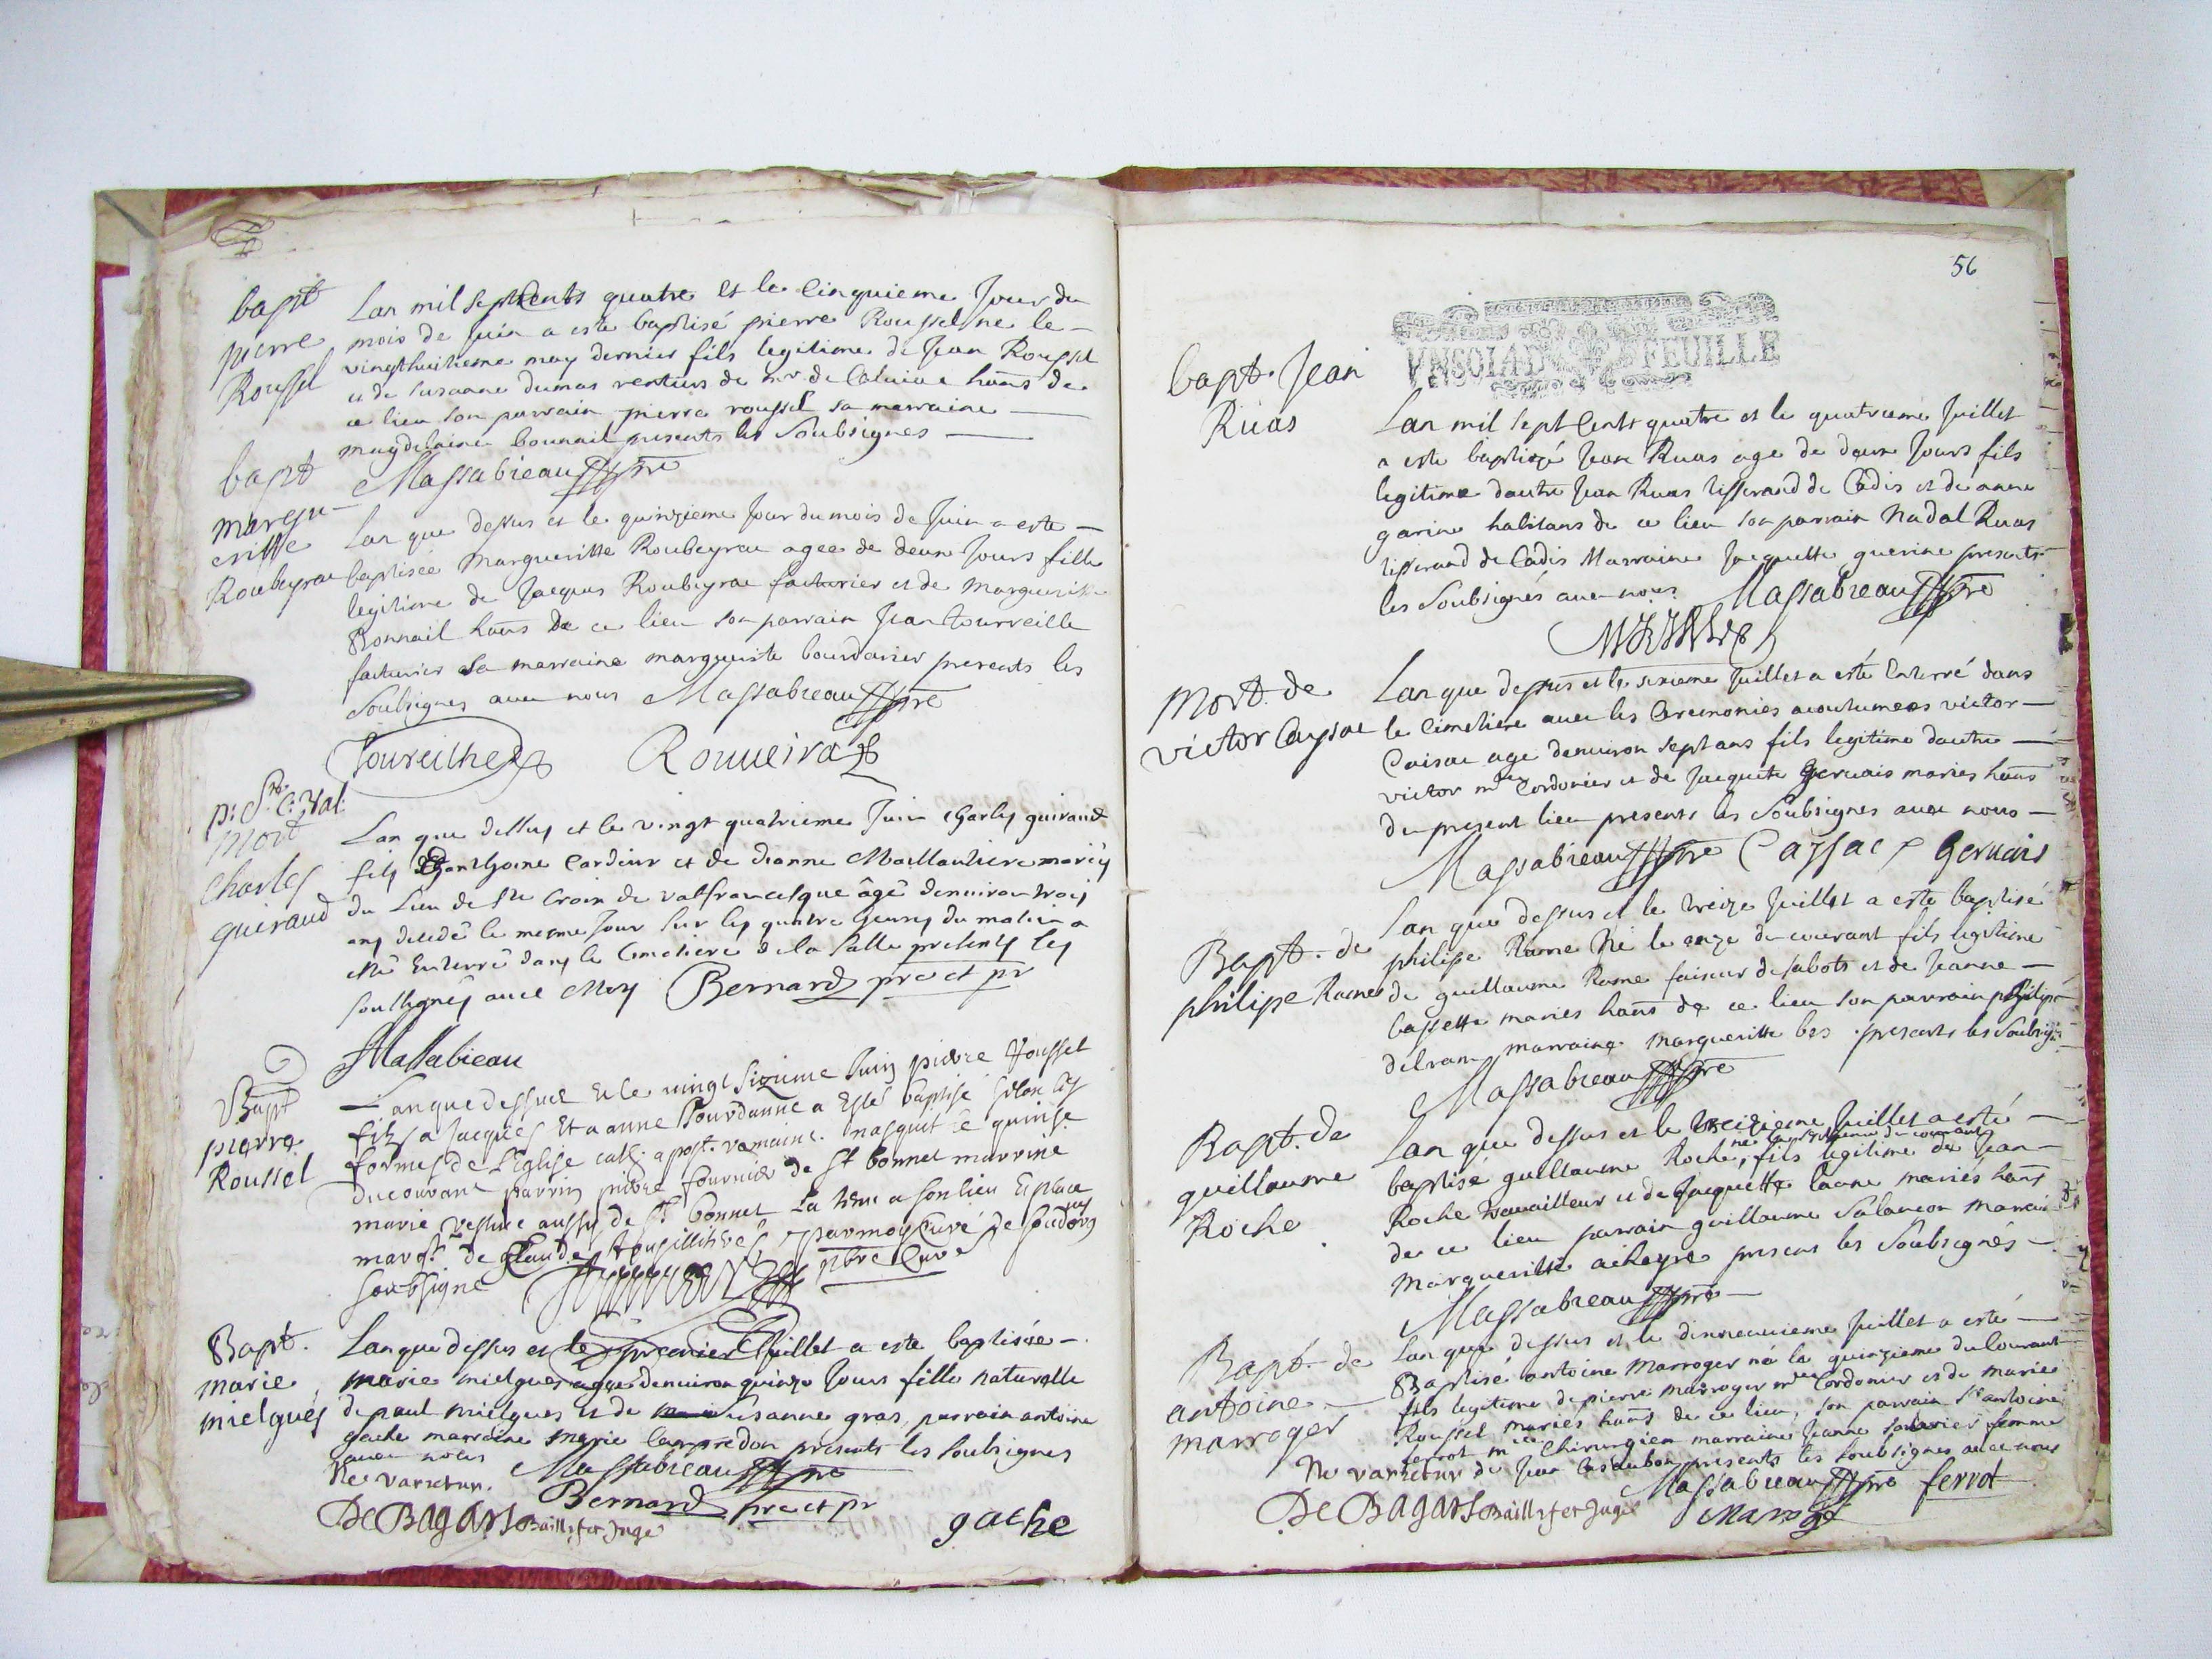 bapt
pierre
Roussel
Lan mil sept Cents quatre et le Cinquieme Jour du
mois de Juin a este baptisé pierre Roussel ne le
vingthuitieme may dernier fils legitime de Jean Roussel
et de susanne dumas rentiers de mr de Caluiac hans de
ce lieu son parrain pierre roussel sa marraine
magdelaine bonnail presents les Soubsignes
Massabieau pre
bapt
margu-
eritte
Roubeyrac
Lan que dessus et le quinzieme Jour du mois de Juin a este
baptisée Margueritte Roubeyrac agee de deux Jours fille
legitime de Jacques Roubeyrac facturier et de Margueritte
Bonnail hans de ce lieu son parrain Jean tourreille
facturier sa marraine marguerite bourdarier presents les
Soubsignes avec nous Massabieau pre
Toureilhe Rouueirac
mort
Charles
guiraud
Lan que dessus et le vingt quatrieme Juin Charles guiraud
fils danthoine Cardeur et de dianne Maillautiere mariés
du Lieu de Ste Croix de valfrancesque âgé denuiron trois
ans decedé le mesme Jour sur les quatre heures du matin a
esté Enterré dans le Cimetiere de la Salle presents les
soussignés avec Moy Bernard pre et pr
Massabieau
Bapt
pierre
Roussel
Lan que dessus et le vingt sizieme Juin pierre Roussel
fils a Jacques Et a anne Bourdanne a Esté baptisé selon les
formes de L'Eglise cath. apost. romaine. nasquit le quinse
du courant parrin pierre fournier de St bonnet marrine
marie aussy de St bonnet
de Claude par moy Curé de soudorgues
soubsigné pbre Curé
Bapt.
marie
mielgues
Lan que dessus et le premier Juillet a este baptisée
marie mielgues agee denuiron quinze Jours fille naturelle
de paul mielgues et de Susanne gras, parrain antoine
gache marraine marie Campredon presents les soubsignes
avec nous
Ne varietur. Massabieau pre
Bernard pre et pr
De Bagars Baillif et Juge gache
56
UN SOL LA FEUILLE
bapt. Jean
Ruas
Lan mil sept Cents quatre et le quatrieme Juillet
a este baptizé Jean Ruas age de deux Jours fils
legitime dautre Jean Ruas tisserand de Cadis et de anne
garine habitans de ce lieu son parrain Nadal Ruas
tisserand de Cadis Marraine Jacquette guerine presents
les Soubsignés avec nous Massabieau pre
Mort de
victor Cayssac
Lan que dessus et le sixieme Juillet a esté Enterré dans
le Cimetiere avec les Ceremonies acoutumees victor
Caisac age denuiron sept ans fils legitime dautre
victor mre Cordonier et de Jacquette gervais mariés hans
du present lieu presents les Soubsignes avec nous
Massabieau pre Cayssac gervais
Bapt. de
philipe Rame
Lan que dessus et le treize Juillet a este baptisé
philipe Rame né le onze du courant fils legitime
de guillaume Rame faiseur de sabots et de Jeanne
bassette mariés hans de ce lieu son parrain philipe
delram marraine margueritte bes presents les Soubsig
Massabieau pre
Bapt. de
guillaume
Roche
Lan que dessus et le treizieme Juillet a esté
baptisé guillaume Roche, fils legitime de Jean
Roche travailleur et de Jacquette mariés hans
de ce lieu parrain guillaume Salancon
Margueritte presens les Soubsignés
Massabieau pre
Bapt. de
antoine
marroger
Lan que dessus et le dixneuvieme Juillet a esté
Baptisé antoine Marroger né le quinzieme du Courant
fils legitime de pierre marroger mre Cordonier et de marie
Roussel mariés hans de ce lieu, son parrain Sr antoine
ferrot mre Chirurgien marraine Jeanne femme
de Jean presents les soubsignes avec nous
Ne varietur Massabieau pre ferrot
De Bagars Baillif et Juge Maroger